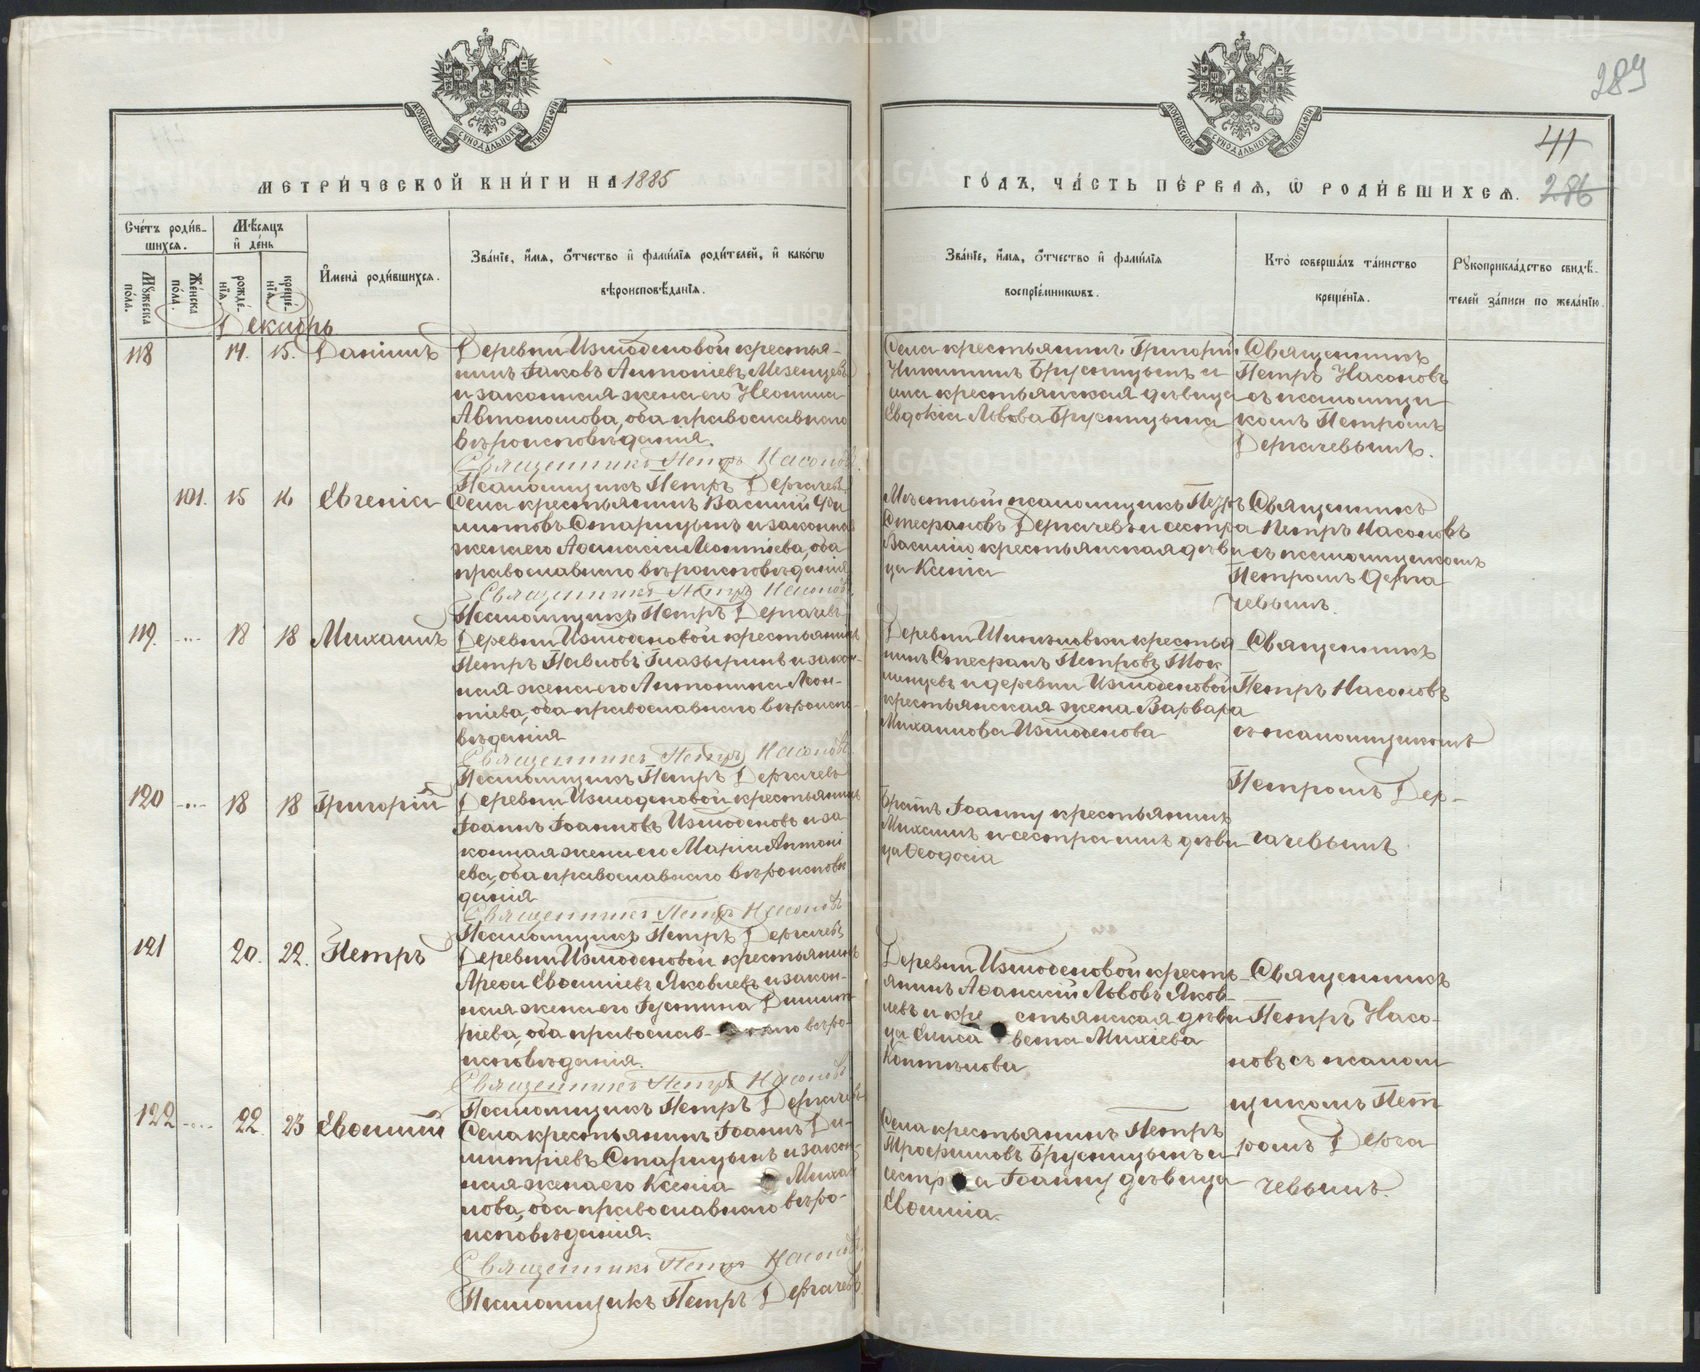 289
41
286
МЕТРИ́ЧЕСКОЙ КНИ́ГИ НА 1885
ГО́ДЪ, ЧА́СТЬ ПЕ́РВАЯ, Ѽ РОДИ́ВШИХСЯ.
Сче́тъ роди́вшихся.
Мѣ́сяцъ и҆ де́нь
Мꙋ́жеска по́ла.
Же́нска пола.
рожде́нїѧ.
креще́нїѧ.
И҆мена̀ роди́вшихся.
Зва́нїе, и҆́мѧ, ѻ҆́тчество и҆ фами́лїѧ роди́телей, и҆ како́гѡ
вѣроисповѣ́данїѧ.
Зва́нїе, и҆́мѧ, ѻ҆́тчество и҆ фами́лїѧ
воспрїе́мникѡвъ.
Кто̀ соверша́лъ та́инство
креще́нїѧ.
Рꙋкоприкла́дство свидѣ́-
телей за́писи по жела́нїю.
Декабрь
118 14. 15. Даніилъ
Деревни Измоденовой крестья-
нинъ Іаковъ Антоніевъ Мезенцевъ
и законная жена его Неонила
Автономова, оба православнаго
вѣроисповѣданія.
Священникъ Петръ Насоновъ.
Псаломщикъ Петръ Дергачевъ
Села крестьянинъ Григорій
Никитинъ Брусницынъ и
крестьянская дѣвица
Евдокіа Львова Брусницына
Священникъ
Петръ Насоновъ
съ псаломщи-
комъ Петромъ
Дергачевымъ.
101. 15 16 Евгенія
Села крестьянинъ Василій
Старицынъ и законная
жена его Аѳанасія Леонтіева, оба
православнаго вѣроисповѣданія
Священникъ Петръ Насоновъ
Псаломщикъ Петръ Дергачевъ
Мѣстный псаломщикъ Петръ
Стефановъ Дергачевъ и сестра
Василію крестьянская дѣви
ца Ксенія
Священникъ
Петръ Насоновъ
съ псаломщикомъ
Петромъ Дерга
чевымъ.
119. 18 18 Михаилъ
Деревни Измоденовой крестьянинъ
Петръ Павловъ Глазыринъ и закон-
ная жена его Антонина Леон-
тіева, оба православнаго вѣроиспо-
вѣданія
Священникъ Петръ Насоновъ
Псаломщикъ Петръ Дергачевъ
Деревни крестья
нинъ Стефанъ Петровъ Мок
и деревни Измоденовой
крестьянская жена Варвара
Михаилова Измоденова
Священникъ
Петръ Насоновъ
съ псаломщикомъ
Петромъ Дер-
гачевымъ
120 18 18 Григорій
Деревни Измоденовой крестьянинъ
Іоаннъ Іоанновъ Измоденовъ и за
конная жена его Марія Антоні
ева, оба православнаго вѣроисповѣ
данія
Священникъ Петръ Насоновъ
Псаломщикъ Петръ Дергачевъ
Братъ Іоанну крестьянинъ
Михаилъ и сестра имъ дѣви
ца Ѳеодосія
121 20. 22. Петръ
Деревни Измоденовой крестьянинъ
Арефа Евѳиміевъ Яковлевъ и закон-
ная жена его Іустина Димит
ріева, оба православ-наго вѣро-
исповѣданія.
Священникъ Петръ Насоновъ
Псаломщикъ Петръ Дергачевъ
Деревни Измоденовой кресть
янинъ Аѳанасій Львовъ Яков
левъ и кре стьянская дѣви
ца Елиса вета Михіева
Коптелова
Священникъ
Петръ Насо-
новъ съ псалом
щикомъ Пет
ромъ Дерга
чевымъ.
122 22. 23 Евѳимій
Села крестьянинъ Іоаннъ Ди-
митріевъ Старицынъ и закон-
ная жена его Ксенія Михаи
лова, оба православнаго вѣро-
исповѣданія.
Священникъ Петръ Насоновъ
Псаломщикъ Петръ Дергачевъ
Села крестьянинъ Петръ
Трофимовъ Брусницынъ и
сестр а Іоанну дѣвица
Евѳимія.